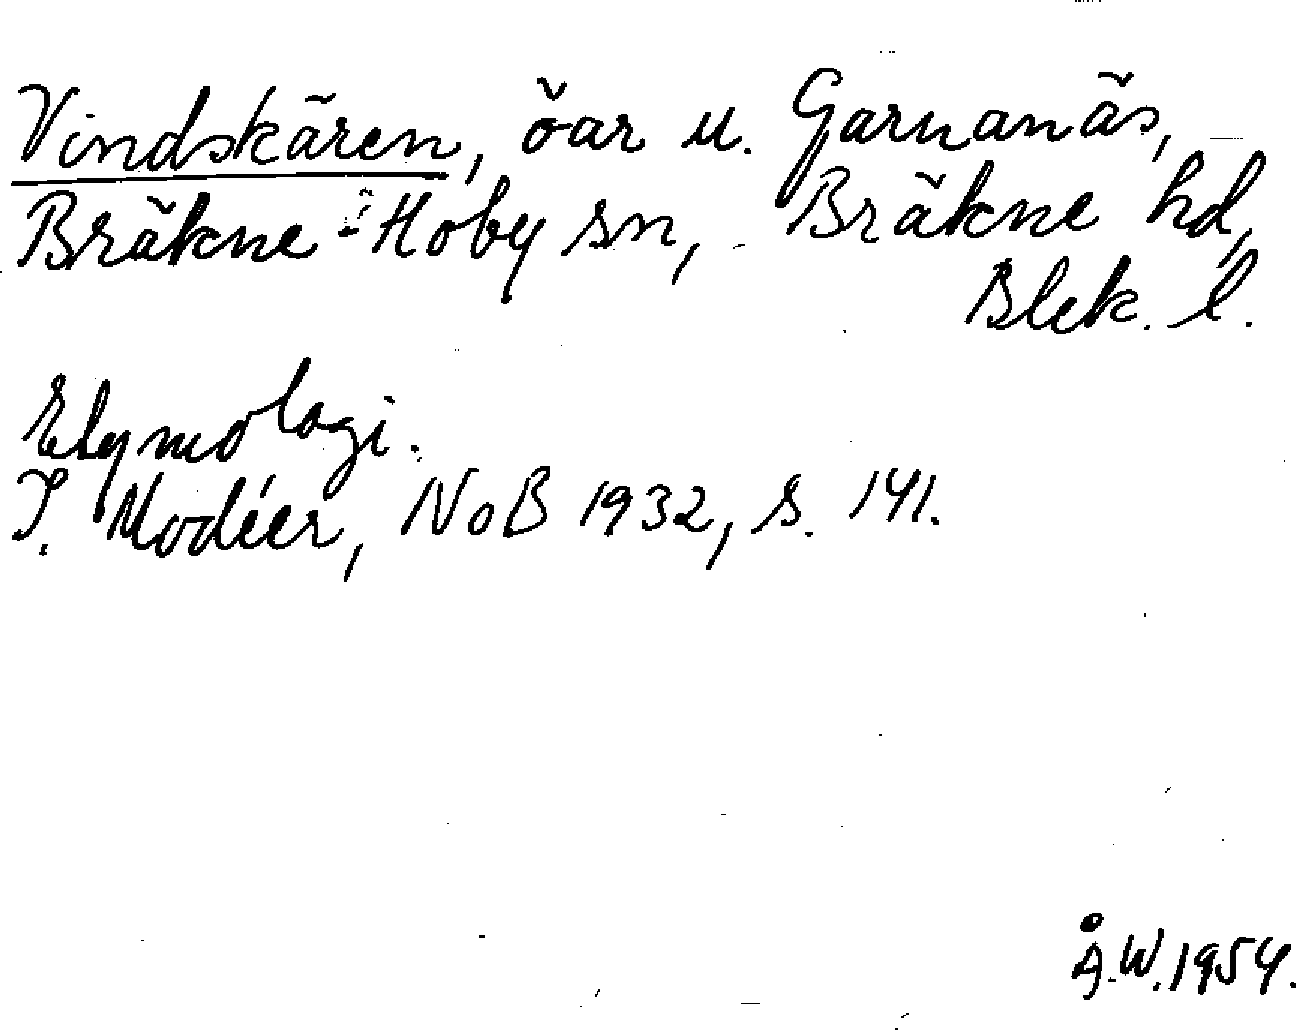 Vindskären, öar u. Garnanäs,
Bräkne-Hoby sn, Bräkne hd,
Blek. l.
Etymologi.
I. Modéer, NoB 1932, s. 141.
Å.W. 1954.